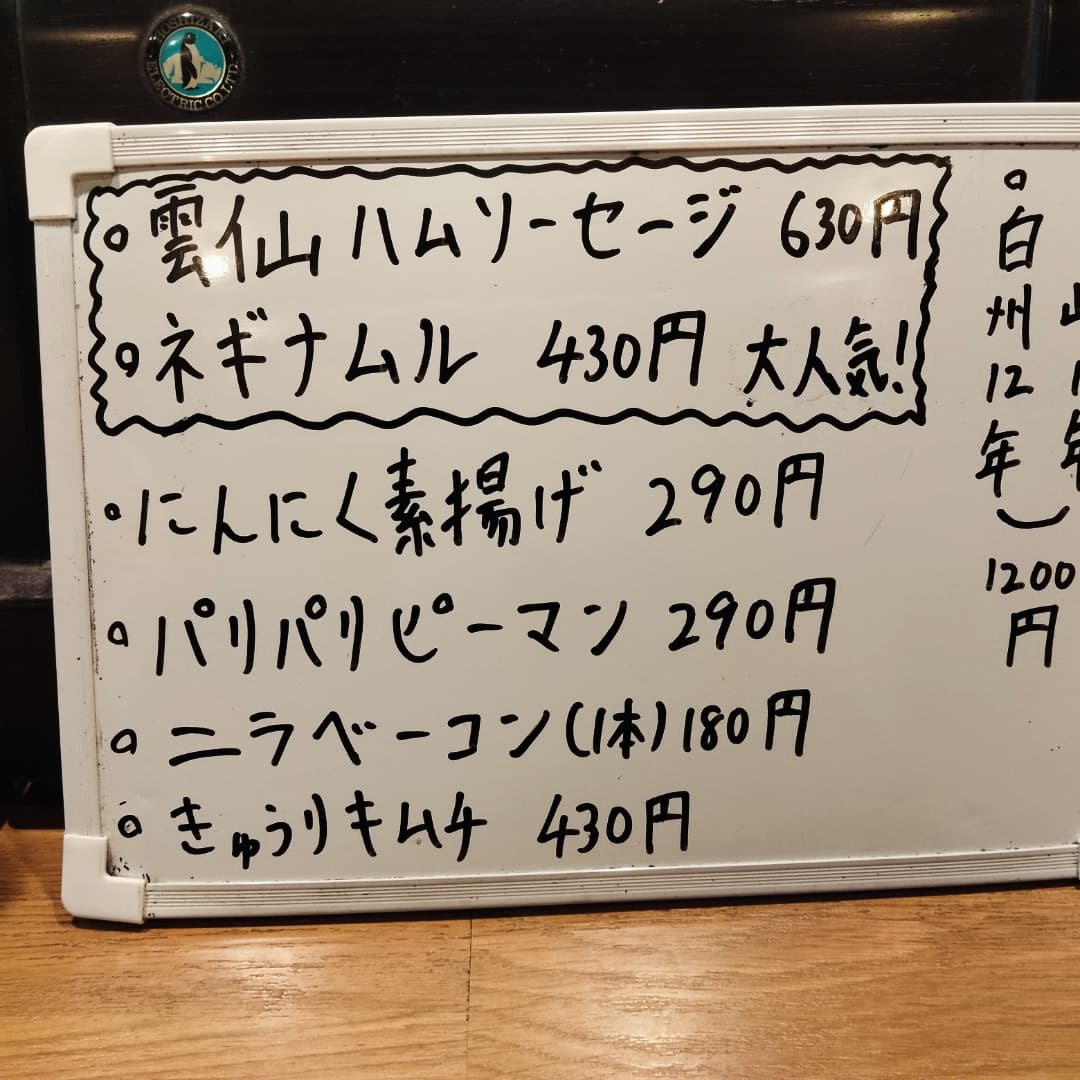 HOSHIZAKI
ELECTRIC CO.,LTD.
○雲仙ハムソーセージ 630円
○ネギナムル 430円 大人気!
○にんにく素揚げ 290円
○パリパリピーマン 290円
○ニラベーコン(1本)180円
○きゅうりキムチ 430円
○白州12年
1200円